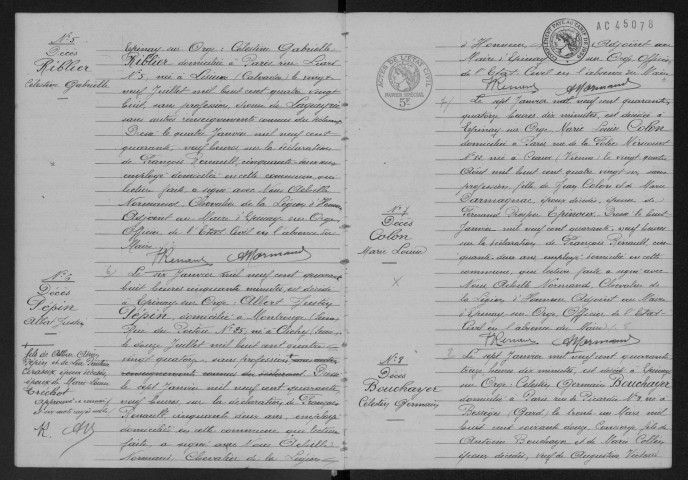 N° 5
Décès
Riblier
Célestine Gabrielle
Epinay sur Orge: Célestine Gabrielle
Riblier domiciliée à Paris rue
N° 3, née à Lisieux (Calvados) le vingt
neuf Juillet mil huit cent quatre vingt
huit, sans profession,
sans autres renseignements connus du déclarant
Dressé le quatre Janvier mil neuf cent
quarante, neuf heures sur la déclaration
de François Renault, cinquante deux ans
employé domicilié en cette commune, qui
lecture faite a signé avec Nous Achille
Normand Chevalier de la Légion d'Honneur
Adjoint au Maire d'Epinay sur Orge
Officier de l'Etat Civil en l'absence du
Maire
F Renault ANormand
N° 6
Décès
Pépin
Albert Justin
Le six Janvier mil neuf cent quarante
huit heures cinquante minutes, est décédé
à Epinay sur Orge: Albert Justin
Pépin, domicilié à Montrouge (Seine)
Rue de N° 85, né à
le douze Juillet mil huit cent quatre
vingt quatre, sans profession
renseignements connus du déclarant Dressé
le sept Janvier mil neuf cent quarante
neuf heures sur la déclaration de François
Renault cinquante deux ans, employé
domicilié en cette commune qui lecture
faite, a signé avec Nous Achille
Normand, Chevalier de la Légion
fils de
Pépin et de
époux décédés
époux de Marie Louise
Trichot
R. AN
AC45078
TIMBRE DE L'ETAT CIVIL
PAPIER SPECIAL
5F
d'Honneur Adjoint au
Maire d'Epinay sur Orge Officier
de l'Etat Civil en l'absence du Maire
F Renault ANormand
N° 7
Décès
Colon
Marie Louise
X
Le sept Janvier mil neuf cent quarante
quatorze heures dix minutes, est décédée à
Epinay sur Orge Marie Louise Colon
domiciliée à Paris rue de la Folie Méricourt
N° 10, née à (Vienne) le vingt quatre
Août mil huit cent quatre vingt un, sans
profession fille de Jean Colon et de Marie
Parmagnac époux décédés, épouse de
Fernand Prosper Epinoux Dressé le huit
Janvier mil neuf cent quarante, neuf heures
sur la déclaration de François Renault, cin
quante deux ans employé domicilié en cette
commune, qui lecture faite a signé avec
Nous Achille Normand, Chevalier de
la Légion d'Honneur Adjoint au Maire
d'Epinay sur Orge, Officier de l'Etat-
Civil en l'absence du Maire
F Renault ANormand
N° 8
Décès
Bouchayer
Célestin Germain
Le sept Janvier mil neuf cent quarante
heures dix minutes, est décédé à Epinay
sur Orge: Célestin Germain Bouchayer
domicilié à Paris rue de Picardie N° 2, né à
Bessèges (Gard) le trente un Mars mil
huit cent soixante douze, fils de
Antoine Bouchayer et de Marie
époux décédés, veuf de Augustine